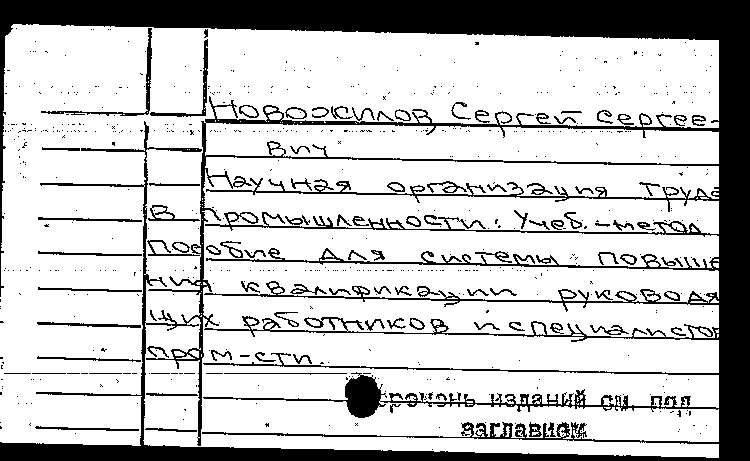 Новожилов, Сергей Сергее-
вич
Научная организация труда
в промышленности: Учеб.-метод
пособие для системы повыше
ния квалификации руководя
щих работников и специалистов
пром-сти.
Перечень изданий см. под
заглавием